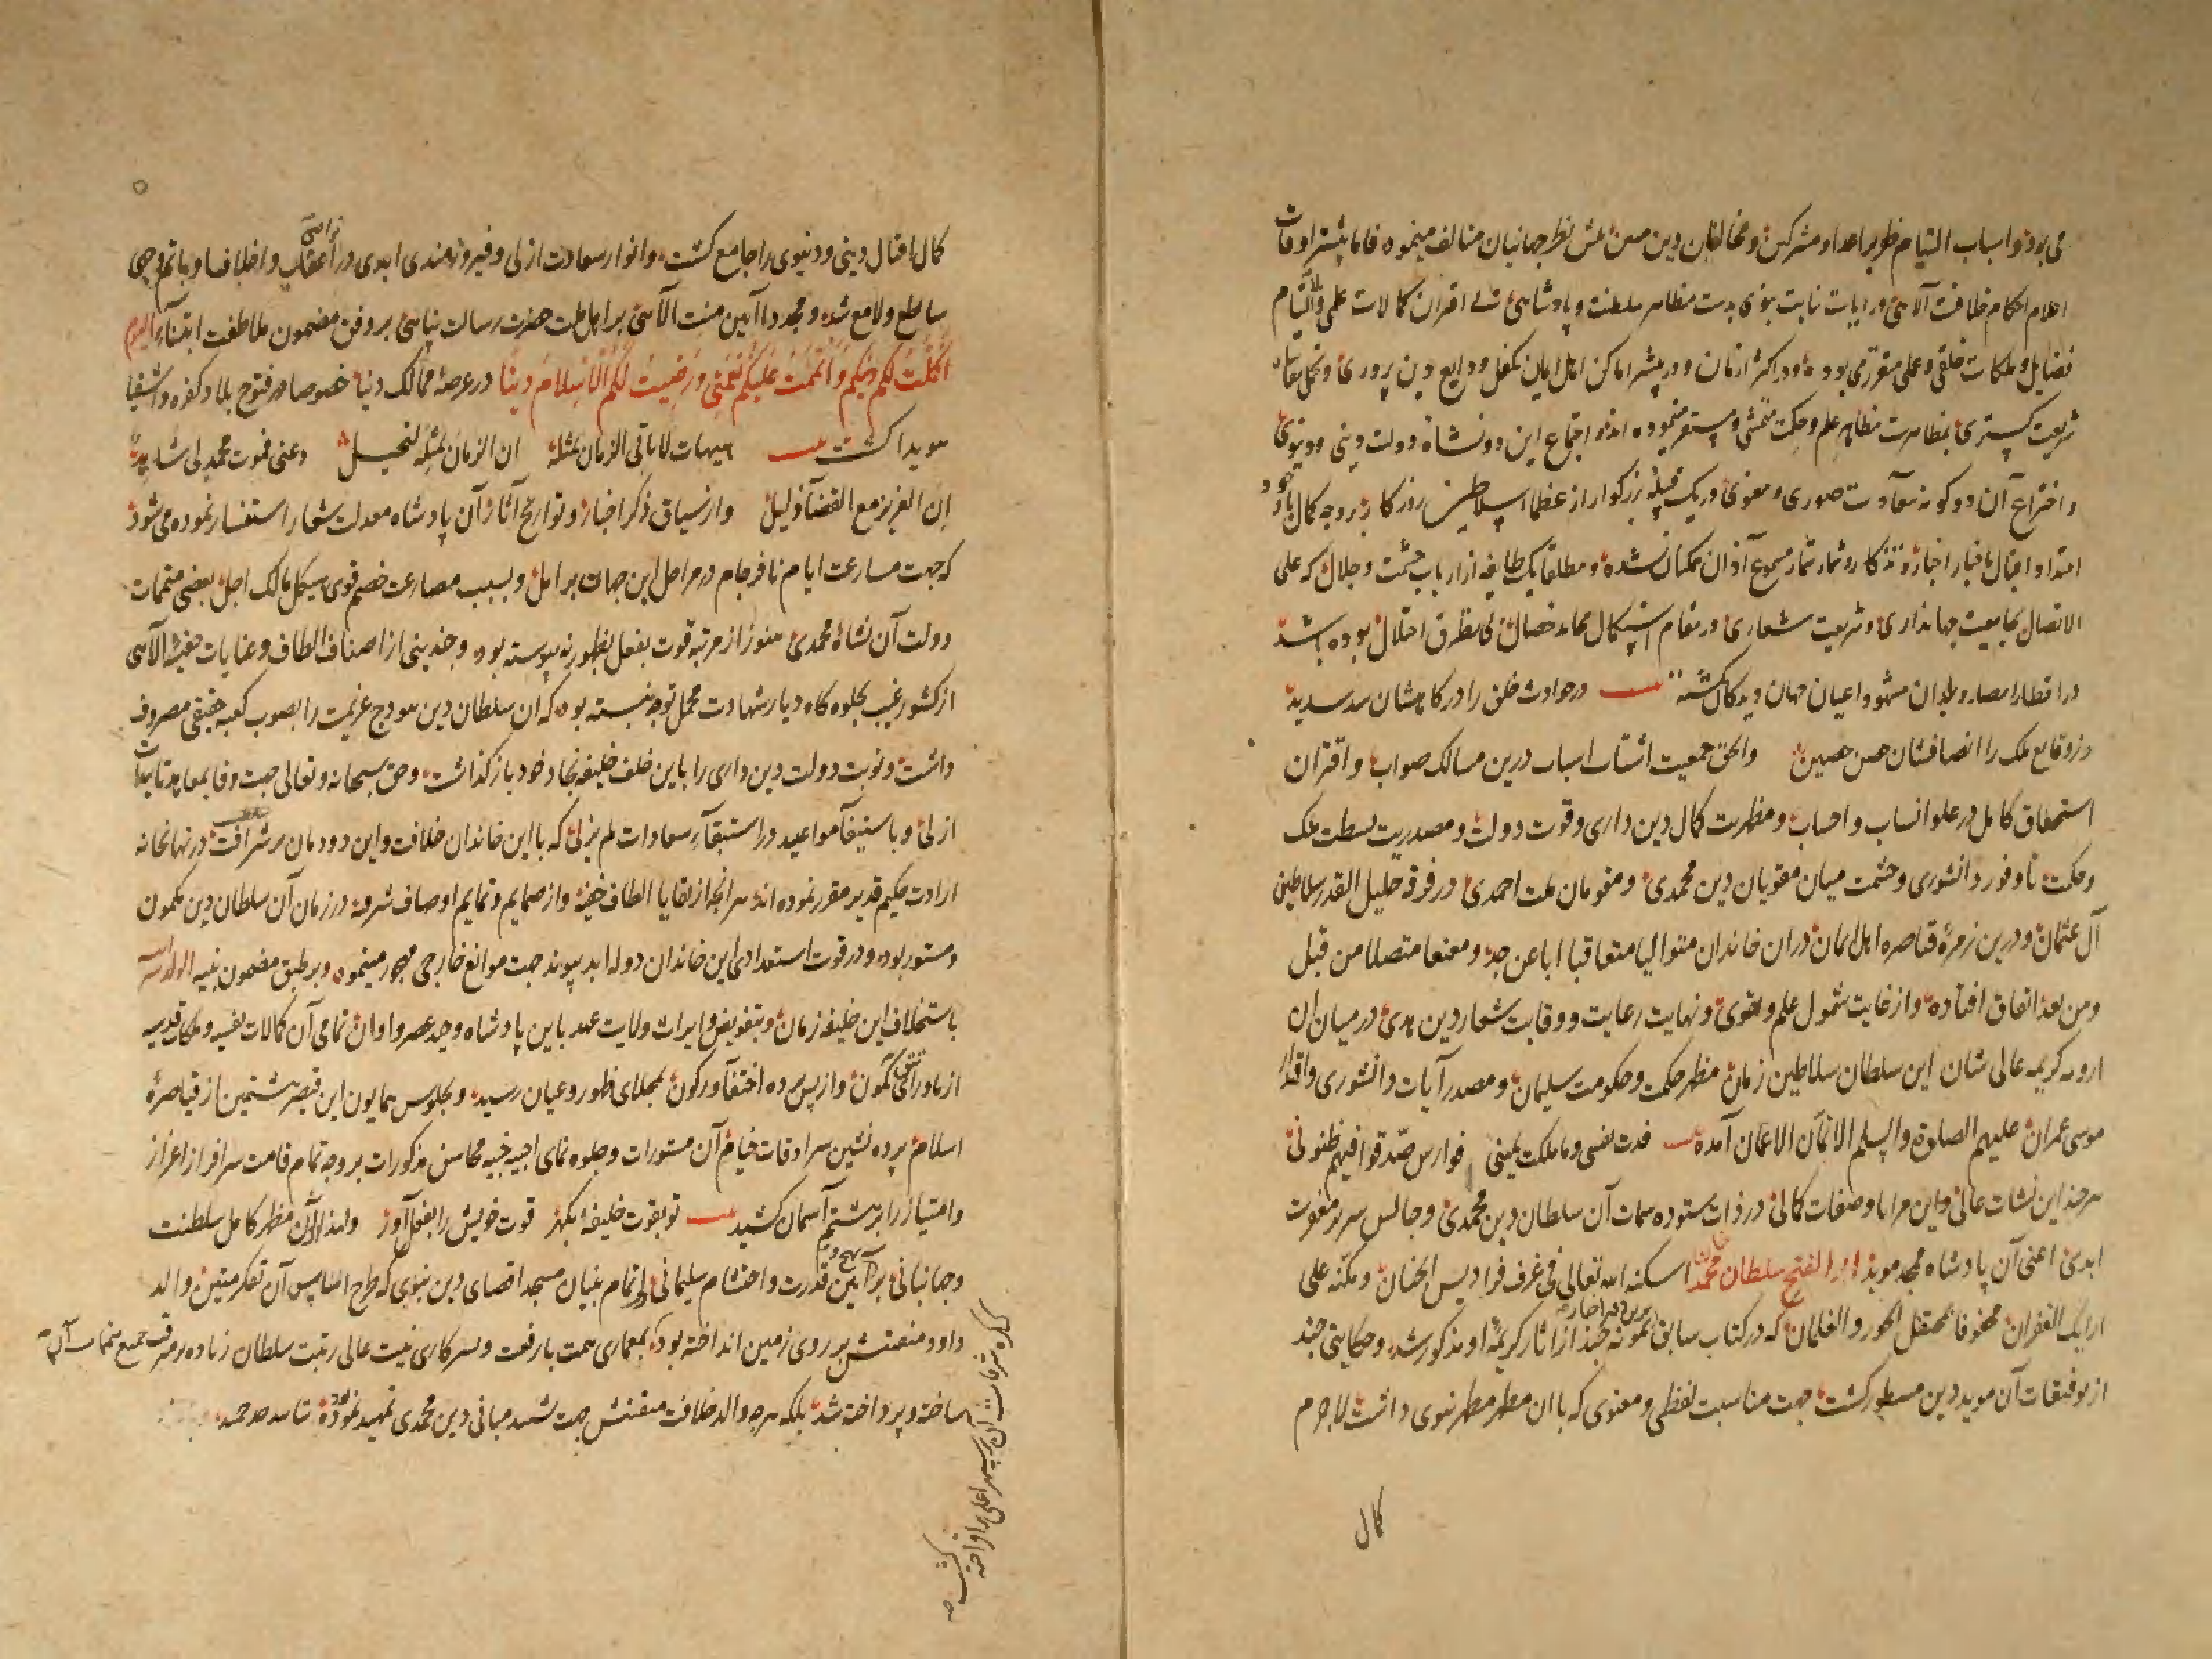 می بود و اسباب التیام ظهور اعداد مشرکین و مخالفان دین مبین پیش نظر جهانیان متالف مینمود فاما بیشتر اوقات
اعلام احکام خلافت آلاهی و رایات نیابت نبوی بدست مظاهر سلطنت و پادشاهی بی اقتران کمالات علمی و التیام
فضایل و ملکات خلقی و عملی مقرر می بوده و در اکثر ازمان و در بیشتر اماکن اهل ایمان تکفل ودایع دین پروری و تحمل
شریعت کستری بمظاهرت مظاهر علم و حکمت متمشی و مستمر می نموده اند و اجتماع این دو نشاة دولت دینی و دنیوی
و اختراع آن دو کونه سعادت صوری و معنوی در یک قبیله بزرکوار از عظما سلاطین روزکار بر وجه کمال
امتداد اقبال باخبار اخبار و تذکار و تمار مسموع آذان ممکنان نشده و مطلقا یک طایفه از ارباب حشمت و جلال که علی
الاتصال بجامعیت جهانداری و شریعت شعاری در مقام استکمال محامد خصال بی تطرق اختلال بوده باشد
در اقطار امصار و بلدان مشهود اعیان جهان و نکشته در حوادث خلق را درکاهشان سد سدید
در وقایع ملک را انصافشان حصن حصین والحق جمعیت اشتات اسباب درین مسالک صواب و اقتران
استحقاق کامل در علو انساب و احساب و مظهریت کمال دین داری و قوت دولت و مصدریت بسطت ملک
وحکمت با وفور دانشوری و حشمت میان مقویان دین محمدی و مقومان ملت احمدی در فرقه جلیل القدر سلاطین
آل عثمان و درین زمرهٔ قیاصره اهل ایمان در ان خاندان متوالیا متعاقبا ابا عن جد و متصلا من قبل
ومن بعد اتفاق افتاده و از غایت شمول علم و تقوی و نهایت رعایت و وقایت شعار دین هدی در میان ان
ارومه کریمه عالی شان این سلطان سلاطین زمان مظهر حکمت و حکومت سلیمان و مصدر آیات دانشوری و اقتدار
موسی عمران علیهم الصلوة والسلم الاتمان الاعمان آمده فدت نفسی وما ملکت یمینی فوارس صدقوا فیهم ظنونی
هر چند این نشات عالی و این مزایا و صفات کمالی در ذات ستوده سمات آن سلطان دین محمدی و جالس سریر مغفرت
ابدی اعنی آن پادشاه مجید موید ابو الفتح سلطان محمد خان اسکنه الله تعالی فی غرف فرادیس الجنان و مکنه علی
ارایک الغفران محفوفا بمحفل الحور والغلمان که در کتاب سابق نمونهٔ چند از آثار کریمهٔ او مذکور شد و حکایتی چند
از موفقات آن موید دین مسطور کشت جهت مناسبت لفظی و معنوی که با ان مظهر مطهر نبوی داشت لاجرم
کمال
کمال اقبال دینی و دنیوی را جامع کشت و انوار سعادت ازلی و فیروزمندی ابدی در اعقاب و اخلاف او باتم وجهی
ساطع و لامع شد و مجددا آیین منت آلاهی بر اهل ملت حضرت رسالت پناهی بر وفق مضمون ملاطفت ابتناء الیوم
اکملت لکم دینکم واتممت علیکم نعمتی ورضیت لکم الاسلام دینا در عرصهٔ ممالک دنیا خصوصا در فتوح بلاد کفره و اشقیا
هویدا کشت هیهات لا یاتی الزمان بمثله ان الزمان بمثله لبخیل
ان العزیز مع القضا ذلیل و از سیاق ذکر اخبار و تواریخ آثار آن پادشاه معدلت شعار استفسار نموده می شود
که جهت مسارعت ایام نافرجام در مراحل این جهان براهل و بسبب مصارعت خصم قوی هیکل هالک اجل بعضی متممات
دولت آن نشاة محمدی هنوز از مرتبه قوت بفعل بظهور نه پیوسته بود و چندینی از اصناف الطاف و عنایات خفیه آلاهی
از کشور غیب بجلوه کاه دیار شهادت محمل توجه نبسته بود که ان سلطان دین هودج عزیمت را بصوب کعبه حقیقی مصروف
داشت و نوبت دولت دین داری را باین خلف خلیفه نجاد خود باز کذاشت و حق سبحانه و تعالی جهت وفا بمعاهد تاییدات
ازلی و باستیفا مواعید در استبقاء سعادات لم یزلی که با این خاندان خلافت و این دودمان شرافت در نهانخانه
ارادت حکیم قدیر مقرر نموده اند هر انچه از بقایا الطاف خفیه و از صمایم و تمایم اوصاف شریفه در زمان آن سلطان دین مکمون
و مستور بود و در قوت استعداد این خاندان دوله ابد پیوند جهت موانع خارجی مهجور مینمود و بر طبق مضمون بنیه الولد سر
باستخلاف این خلیفه زمان و بتفویض و ایراث ولایت عهد باین پادشاه وحید عصر و اوان تمامی آن کمالات نفسیه و ملکات قدسیه
از ماورای تتق کمون و از پس پرده اختفا و رکون بمجلای ظهور و عیان رسید و بجلوس همایون این قیصر هشتمین از قیاصرهٔ
اسلام پرده نشین سرادقات خیام آن مستورات و جلوه نمای محاسن مذکورات بر وجه تمام قامت سرافراز اعزاز
و امتیاز را بر هشتم آسمان کشید تو بقوت خلیفهٔ بکهر قوت خویش را بفعل آور ولهذا الآن مظهر کامل سلطنت
وجهانبانی بر آیین قدرت و احتشام سلیمانی و اتمام بنیان مسجد اقصای دین نبوی که طرح اساس آن تفکر متین والد
داود منقبتش بر روی زمین انداخته بود بمعماری همت با رفعت و بسرکاری نیت عالی رتبت سلطان
ساخته و پرداخته شد بلکه هرچه والد خلافت منقبتش جهت تشیید مبانی دین محمدی تمهید نموده